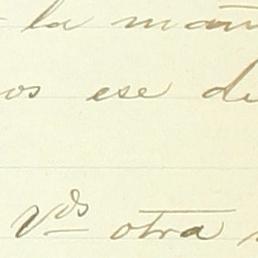 la mañ
os ese de
Vds otra